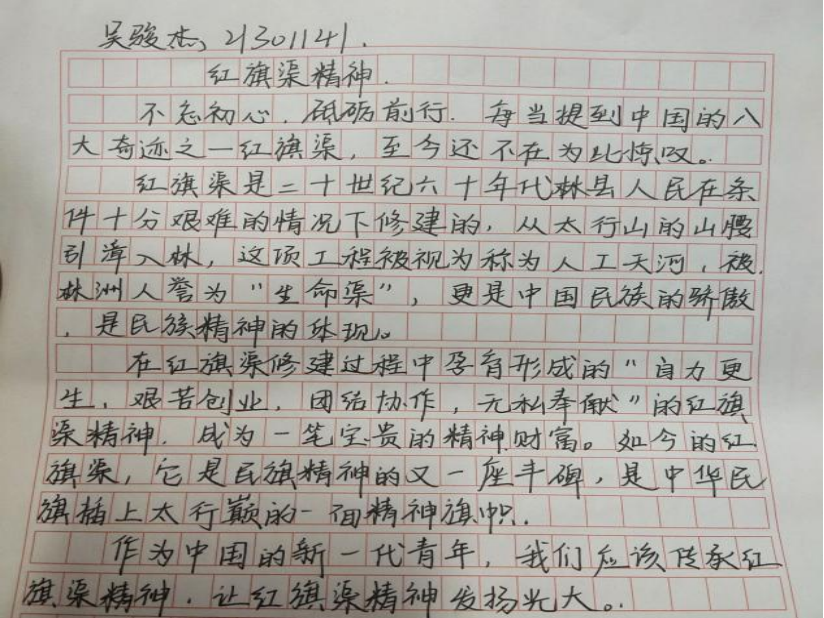 吴骏杰, 21301141.
红旗渠精神.
不忘初心,砥砺前行.每当提到中国的八
大奇迹之一红旗渠,至今还不在为此惊叹。
红旗渠是二十世纪六十年代林县人民在条
件十分艰难的情况下修建的,从太行山的山腰
引漳入林,这项工程被视为称为人工天河,被
林洲人誉为“生命渠”,更是中国民族的骄傲
,是民族精神的体现。
在红旗渠修建过程中孕育形成的“自力更
生,艰苦创业,团结协作,无私奉献”的红旗
渠精神.成为一笔宝贵的精神财富。如今的红
旗渠,它是民旗精神的又一座丰碑,是中华民
旗插上太行巅的一面精神旗帜.
作为中国的新一代青年,我们应该传承红
旗渠精神.让红旗渠精神发扬光大。